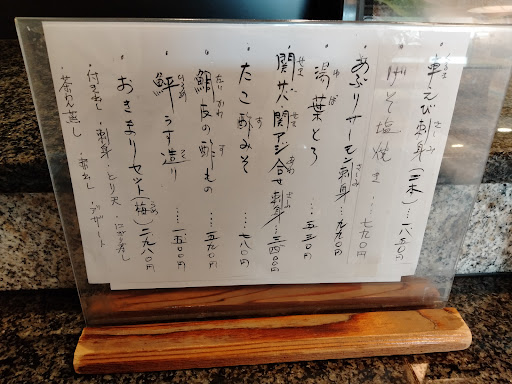 ・車えび刺身(二本)…一八五〇円
・げそ塩焼き…七九〇円
・あぶりサーモン刺身…九九〇円
・湯葉とろ…五三〇円
・関サバ・関アジ合せ刺身…三四〇〇円
・たこ酢みそ…七八〇円
・鯛皮の酢もの…五九〇円
・鮃うす造り…一五〇〇円
・おきまりセット(梅)二九八〇円
付き出し・刺身・とり天・にぎり寿し
茶わん蒸し・デザート